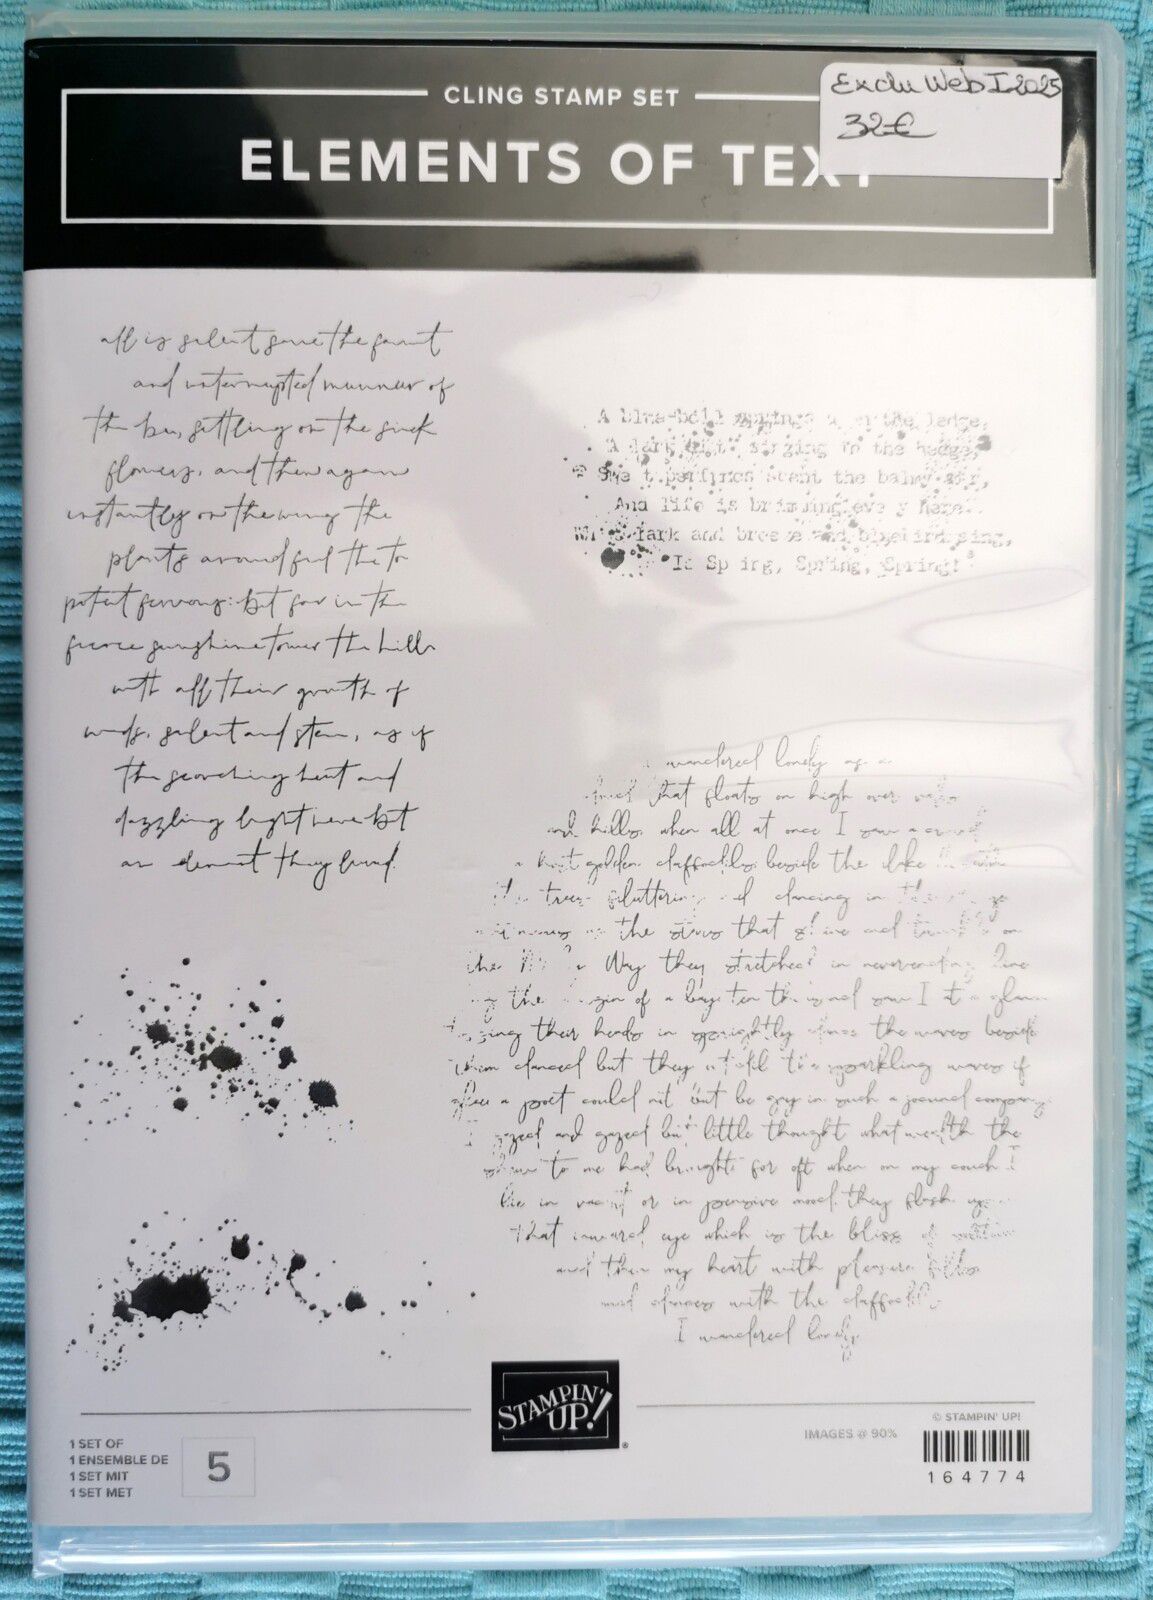 CLING STAMP SET
Exclu Web I 2025
32€
ELEMENTS OF TEXT
all is silent save the faint
and interrupted murmur of
the bee, settling on the sick
flowers, and then again
instantly on the wing the
plants around feel the to
potent fervour: but far in the
fierce sunshine tower the hills
with all their growth of
woods, silent and stern, as if
the scorching heat and
dazzling light were but
an element they loved.
A blue-bell springs upon the ledge,
A lark sits singing in the hedge;
Sweet perfumes scent the balmy air,
And life is brimming everywhere.
What lark and breeze and bluebird sing,
Is Spring, Spring, Spring!
wandered lonely as a
cloud that floats on high over vales
and hills, when all at once I saw a crowd
a host golden daffodils beside the lake
the trees fluttering and dancing in the
the stars that shine and twinkle on
the Milky Way they stretched in neverending line
the margin of a bay ten thousand saw I at a glance
tossing their heads in sprightly dance the waves beside
them danced but they outdid the sparkling waves if
glee a poet could not but be gay in such a jocund company
I gazed and gazed but little thought what wealth the
show to me had brought for oft when on my couch I
lie in vacant or in pensive mood they flash upon
that inward eye which is the bliss of
and then my heart with pleasure fills
and dances with the daffodils
I wandered lonely
STAMPIN'
UP!
®
© STAMPIN' UP!
IMAGES @ 90%
1 SET OF
1 ENSEMBLE DE
1 SET MIT
1 SET MET
5
164774